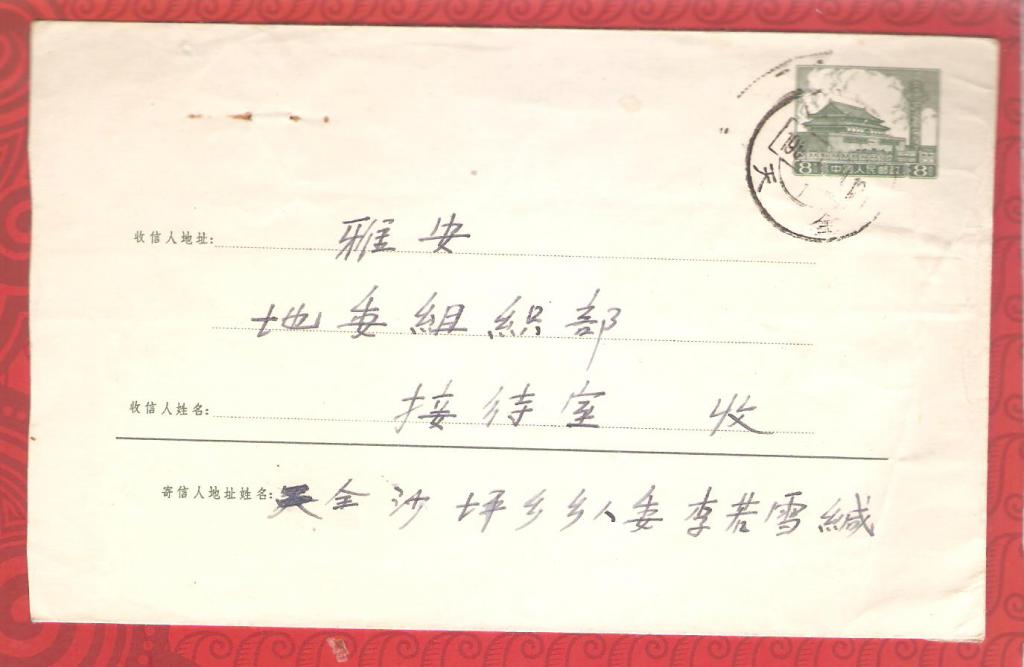 8 中国人民邮政 8
天 全
收信人地址: 雅安
地委組織部
收信人姓名: 接待室 收
寄信人地址姓名: 天全沙坪乡乡人委李若雪缄